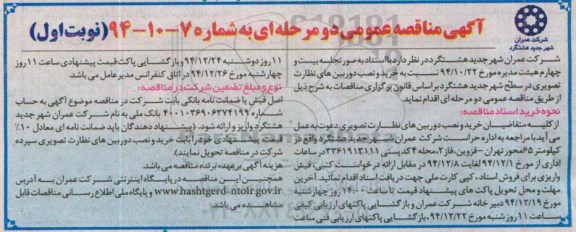 آگهی مناقصه عمومی دو مرحله ای به شماره ۷-۱۰-۹۴ (نوبت اول)
شرکت عمران
شهر جدید هشتگرد
شرکت عمران شهر جدید هشتگرد در نظر دارد با استناد به صورتجلسه بیست و
چهارم هیئت مدیره مورخ ۹۴/۱۰/۲۲ نسبت به خرید و نصب دوربین های نظارت
تصویری در سطح شهر جدید هشتگرد بر اساس قانون برگزاری مناقصات به شرح ذیل
از طریق مناقصه عمومی دو مرحله ای اقدام نماید.
نحوه خرید اسناد مناقصه:
از کلیه متقاضیان خرید و نصب دوربین های نظارت تصویری دعوت به عمل
می آید با مراجعه به اداره حراست شرکت عمران شهر جدید هشتگرد واقع در
کیلومتر ۶۵ محور تهران - قزوین، فاز ۲، محله ۴ کد پستی ۳۳۶۱۹۱۳۱۱۱ در ساعات
اداری از مورخ ۹۴/۱۲/۱ لغایت ۹۴/۱۲/۸ در مقابل ارائه درخواست کتبی، فیش
واریزی برای فروش اسناد، کپی کارت ملی جهت دریافت اسناد اقدام نمائید. آخرین
مهلت و محل تحویل پاکت های پیشنهاد قیمت تا ساعت ۱۴:۰۰ روز چهارشنبه
مورخ ۹۴/۱۲/۱۹ دبیرخانه شرکت عمران و بازگشایی پاکتهای ارزیابی کیفی
ساعت ۱۱ روز شنبه مورخ ۹۴/۱۲/۲۲، بازگشایی پاکتهای ارزیابی فنی ساعت
۱۱ روز دوشنبه ۹۴/۱۲/۲۴ و بازگشایی پاکت قیمت پیشنهادی ساعت ۱۱ روز
چهارشنبه مورخ ۹۴/۱۲/۲۶ در اتاق کنفرانس مدیر عامل می باشد.
نوع و مبلغ تضمین شرکت در مناقصه:
اصل فیش یا ضمانت نامه بانکی بابت شرکت در مناقصه موضوع آگهی به حساب
شماره ۴۰۰۱۰۳۶۹۰۶۳۷۴۱۹۹ بانک ملی به نام شرکت عمران شهر جدید
هشتگرد واریز و ارائه شود. (پیشنهاد دهندگان باید ضمانت نامه ای معادل ۱۰٪
قیمت پیشنهادی خود را بابت خرید و نصب دوربین های نظارت تصویری سپرده
شرکت در مناقصه تحویل نمایند)
هزینه آگهی بر عهده برنده مناقصه می باشد.
همچنین این مناقصه در پایگاه اینترنتی شرکت عمران به آدرس
www.hashtgerd-ntoir.gov.ir و پایگاه ملی اطلاع رسانی مناقصات قابل
مشاهده می باشد.